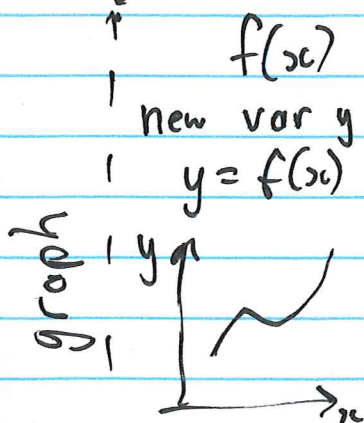 f(x)
new var y
y = f(x)
graph
y
x